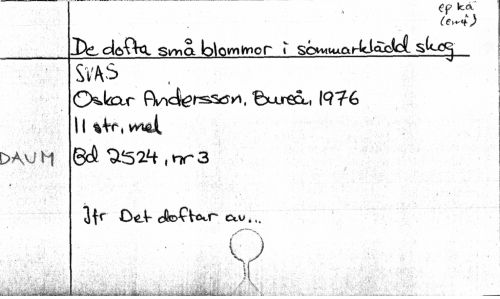 ep kä
(em)
De dofta små blommor i sommarklädd skog
SVAS
Oskar Andersson, Bureå, 1976
11 str, mel
DAUM Bd 2524, nr 3
Jfr Det doftar av...